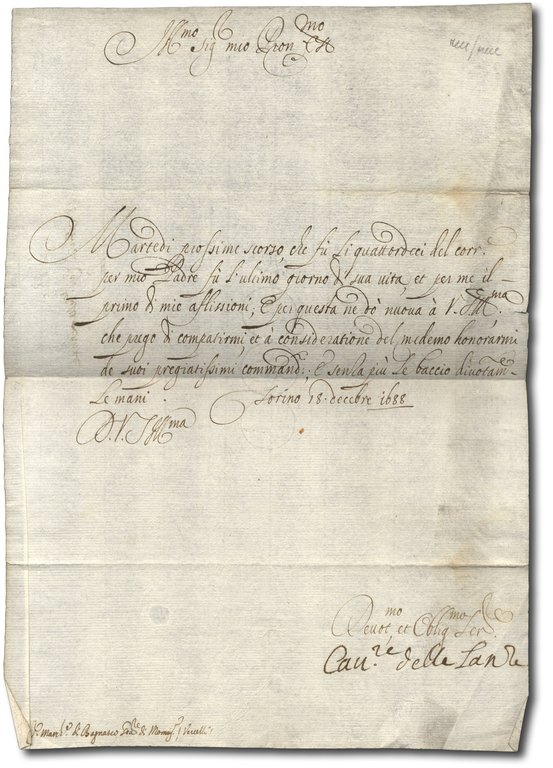 Ill.mo Sig.r mio Pron mo
Martedi prossime scorso, che fù li quattordeci del corr.e
per mio Padre fù l'ultimo giorno di sua vita, et per me il
primo di mie aflissioni, E per questa ne dò nuova à V.S. Ill.ma
che prego di compatirmi, et à consideratione del medemo honorarmi
de suoi pregiatissimi command.i E senza più le baccio divotam.te
le mani. Torino 18. decēbre 1688
D.V.S. Ill.ma
Devot.mo et Oblig.mo Ser.
Cau.re delle Lan
March.e di Bagnasco